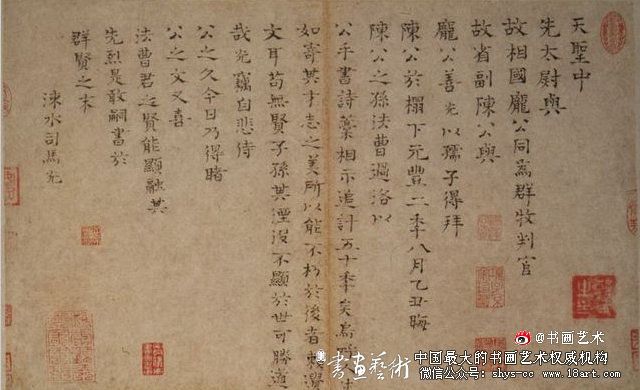 天聖中
先太尉與
故相國龐公同爲群牧判官
故省副陳公與
龐公善光以孺子得拜
陳公於榻下元豐二季八月乙丑晦
陳公之孫法曹過洛以
公手書詩藁相示追計五十季矣烏
如寄其才志之美所以能不朽於後者賴遺
文耳苟無賢子孫其湮沒不顯於世可勝道
哉光竊自悲侍
公之久今日乃得睹
公之文又喜
法曹君之賢能顯融其
先烈是敢嗣書於
群賢之末
涑水司馬光
書畫藝術
@书画艺术
中国最大的书画艺术权威机构
微信公众号: shys-cc www.18art.com